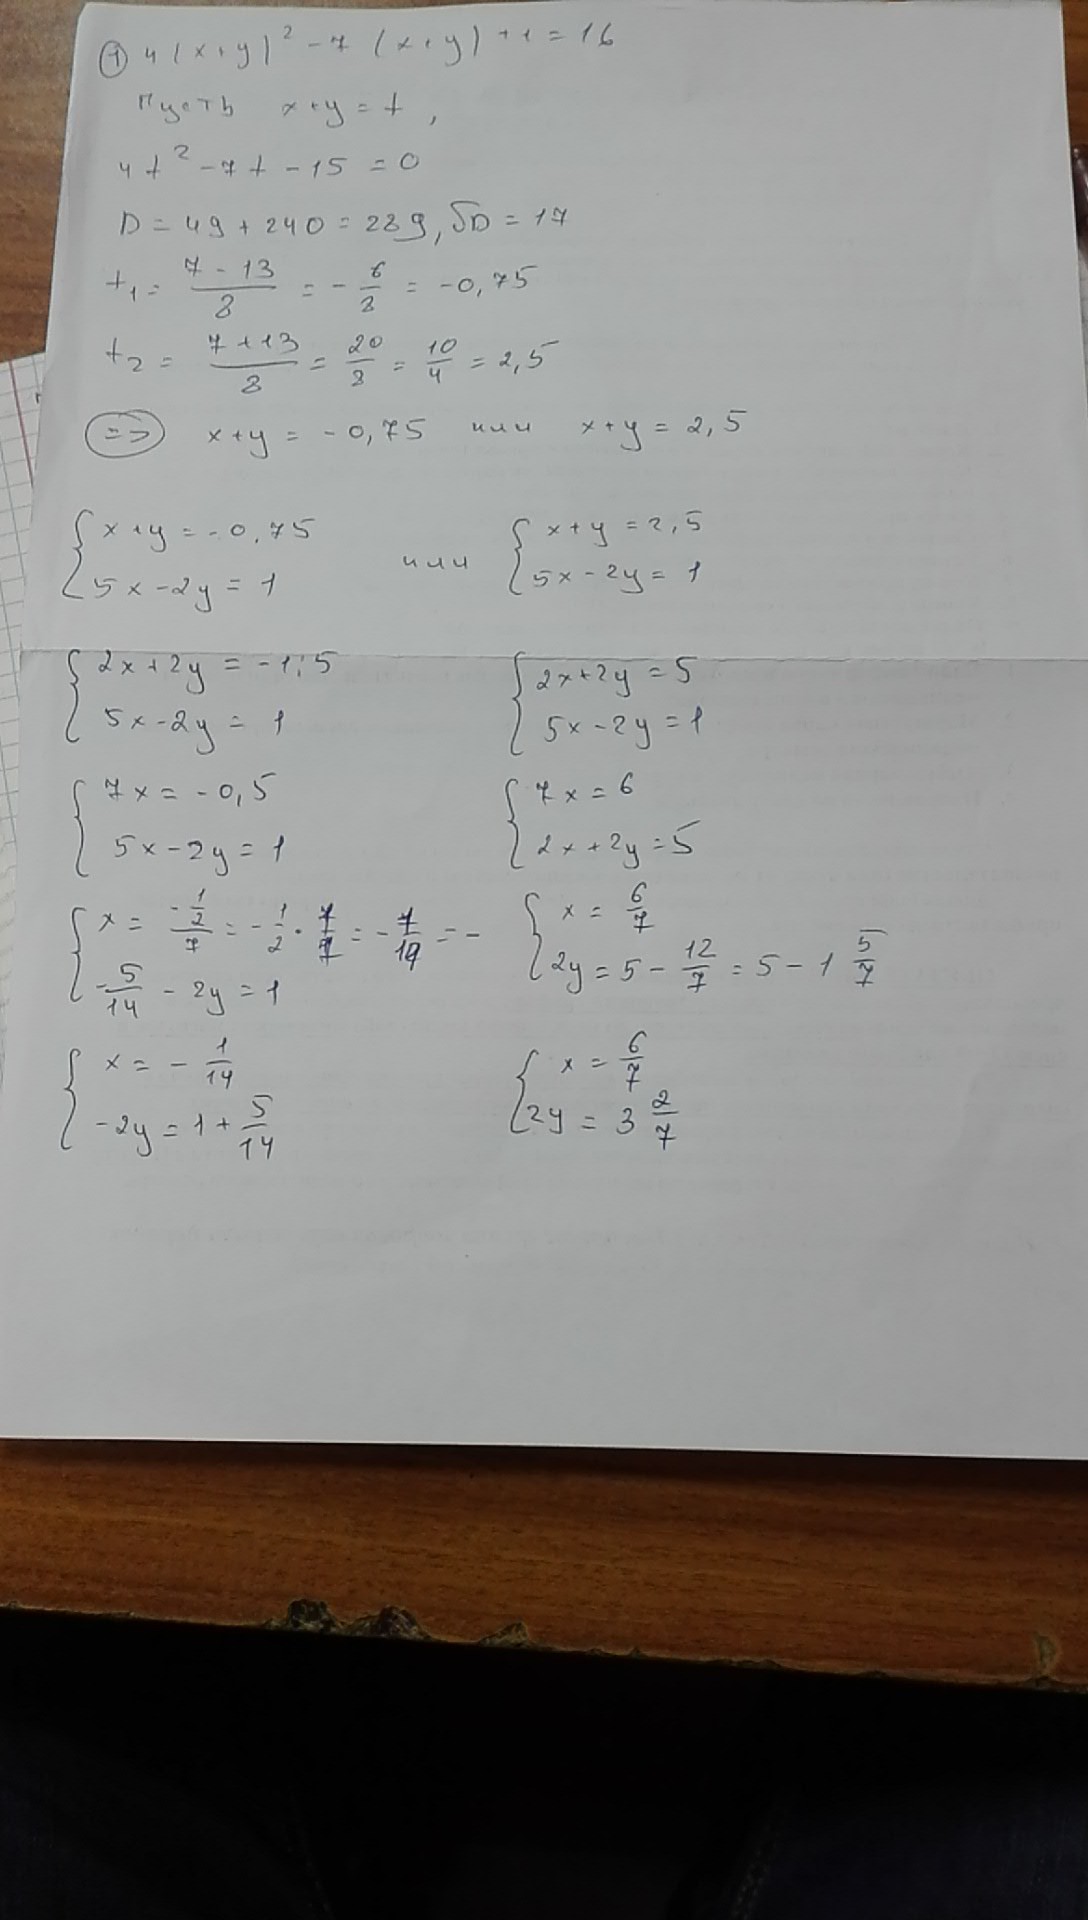 ① 4(x+y)² - 7(x+y) + 1 = 16
Пусть x+y = t,
4t² - 7t - 15 = 0
D = 49 + 240 = 289, √D = 17
t₁ = (7 - 13)/8 = - 6/8 = -0,75
t₂ = (7 + 13)/8 = 20/8 = 10/4 = 2,5
=> x+y = -0,75 или x+y = 2,5
{ x+y = -0,75 или { x+y = 2,5
5x-2y = 1 5x-2y = 1
{ 2x+2y = -1,5 { 2x+2y = 5
5x-2y = 1 5x-2y = 1
{ 7x = -0,5 { 7x = 6
5x-2y = 1 2x+2y = 5
{ x = (-1/2)/7 = -1/2 · 7/7 = -7/14 = - { x = 6/7
-5/14 - 2y = 1 2y = 5 - 12/7 = 5 - 1 5/7
{ x = - 1/14 { x = 6/7
-2y = 1 + 5/14 2y = 3 2/7